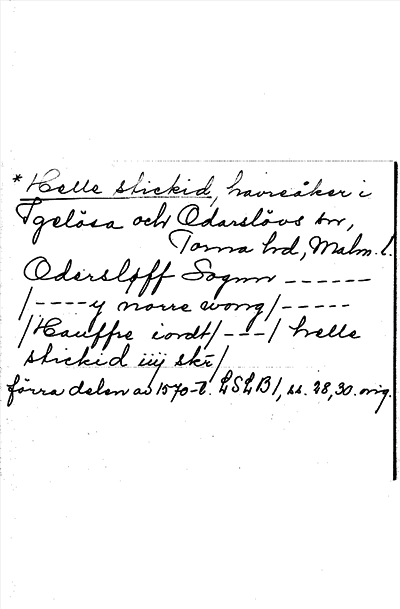 * Helle stickid, havreåker i
Igelösa och Odarslövs snr,
Torna hd, Malm. l.
Odersløff Sognn ------
/----y norre wong/-----
/Hauffre iordt/---/ helle
stickid iiij skr/
förra delen av 1570-t. LSLB1, ss. 28, 30. orig.